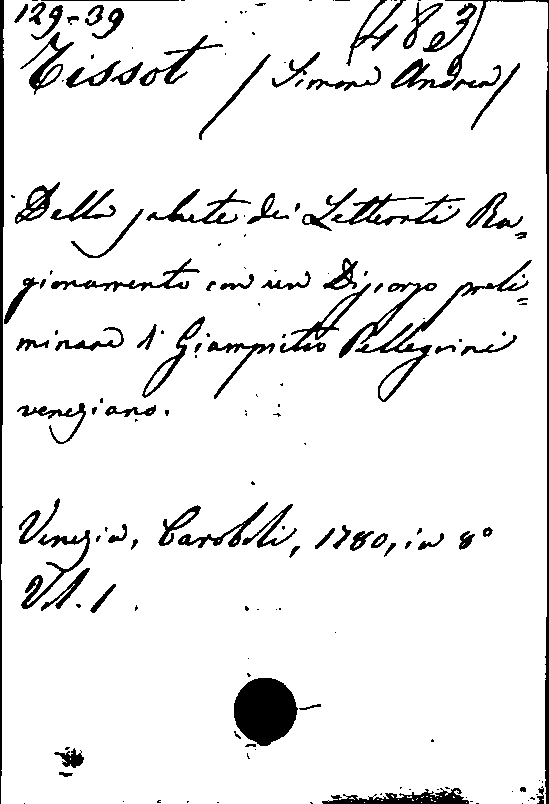 129-39 (483)
Tissot (Simone Andrea)
Della salute dei Letterati Ra=
gionamento con un Discorso preli=
minare di Giampietro Pellegrini
veneziano.
Venezia, Caroboli, 1780, in 8º
Vol. 1